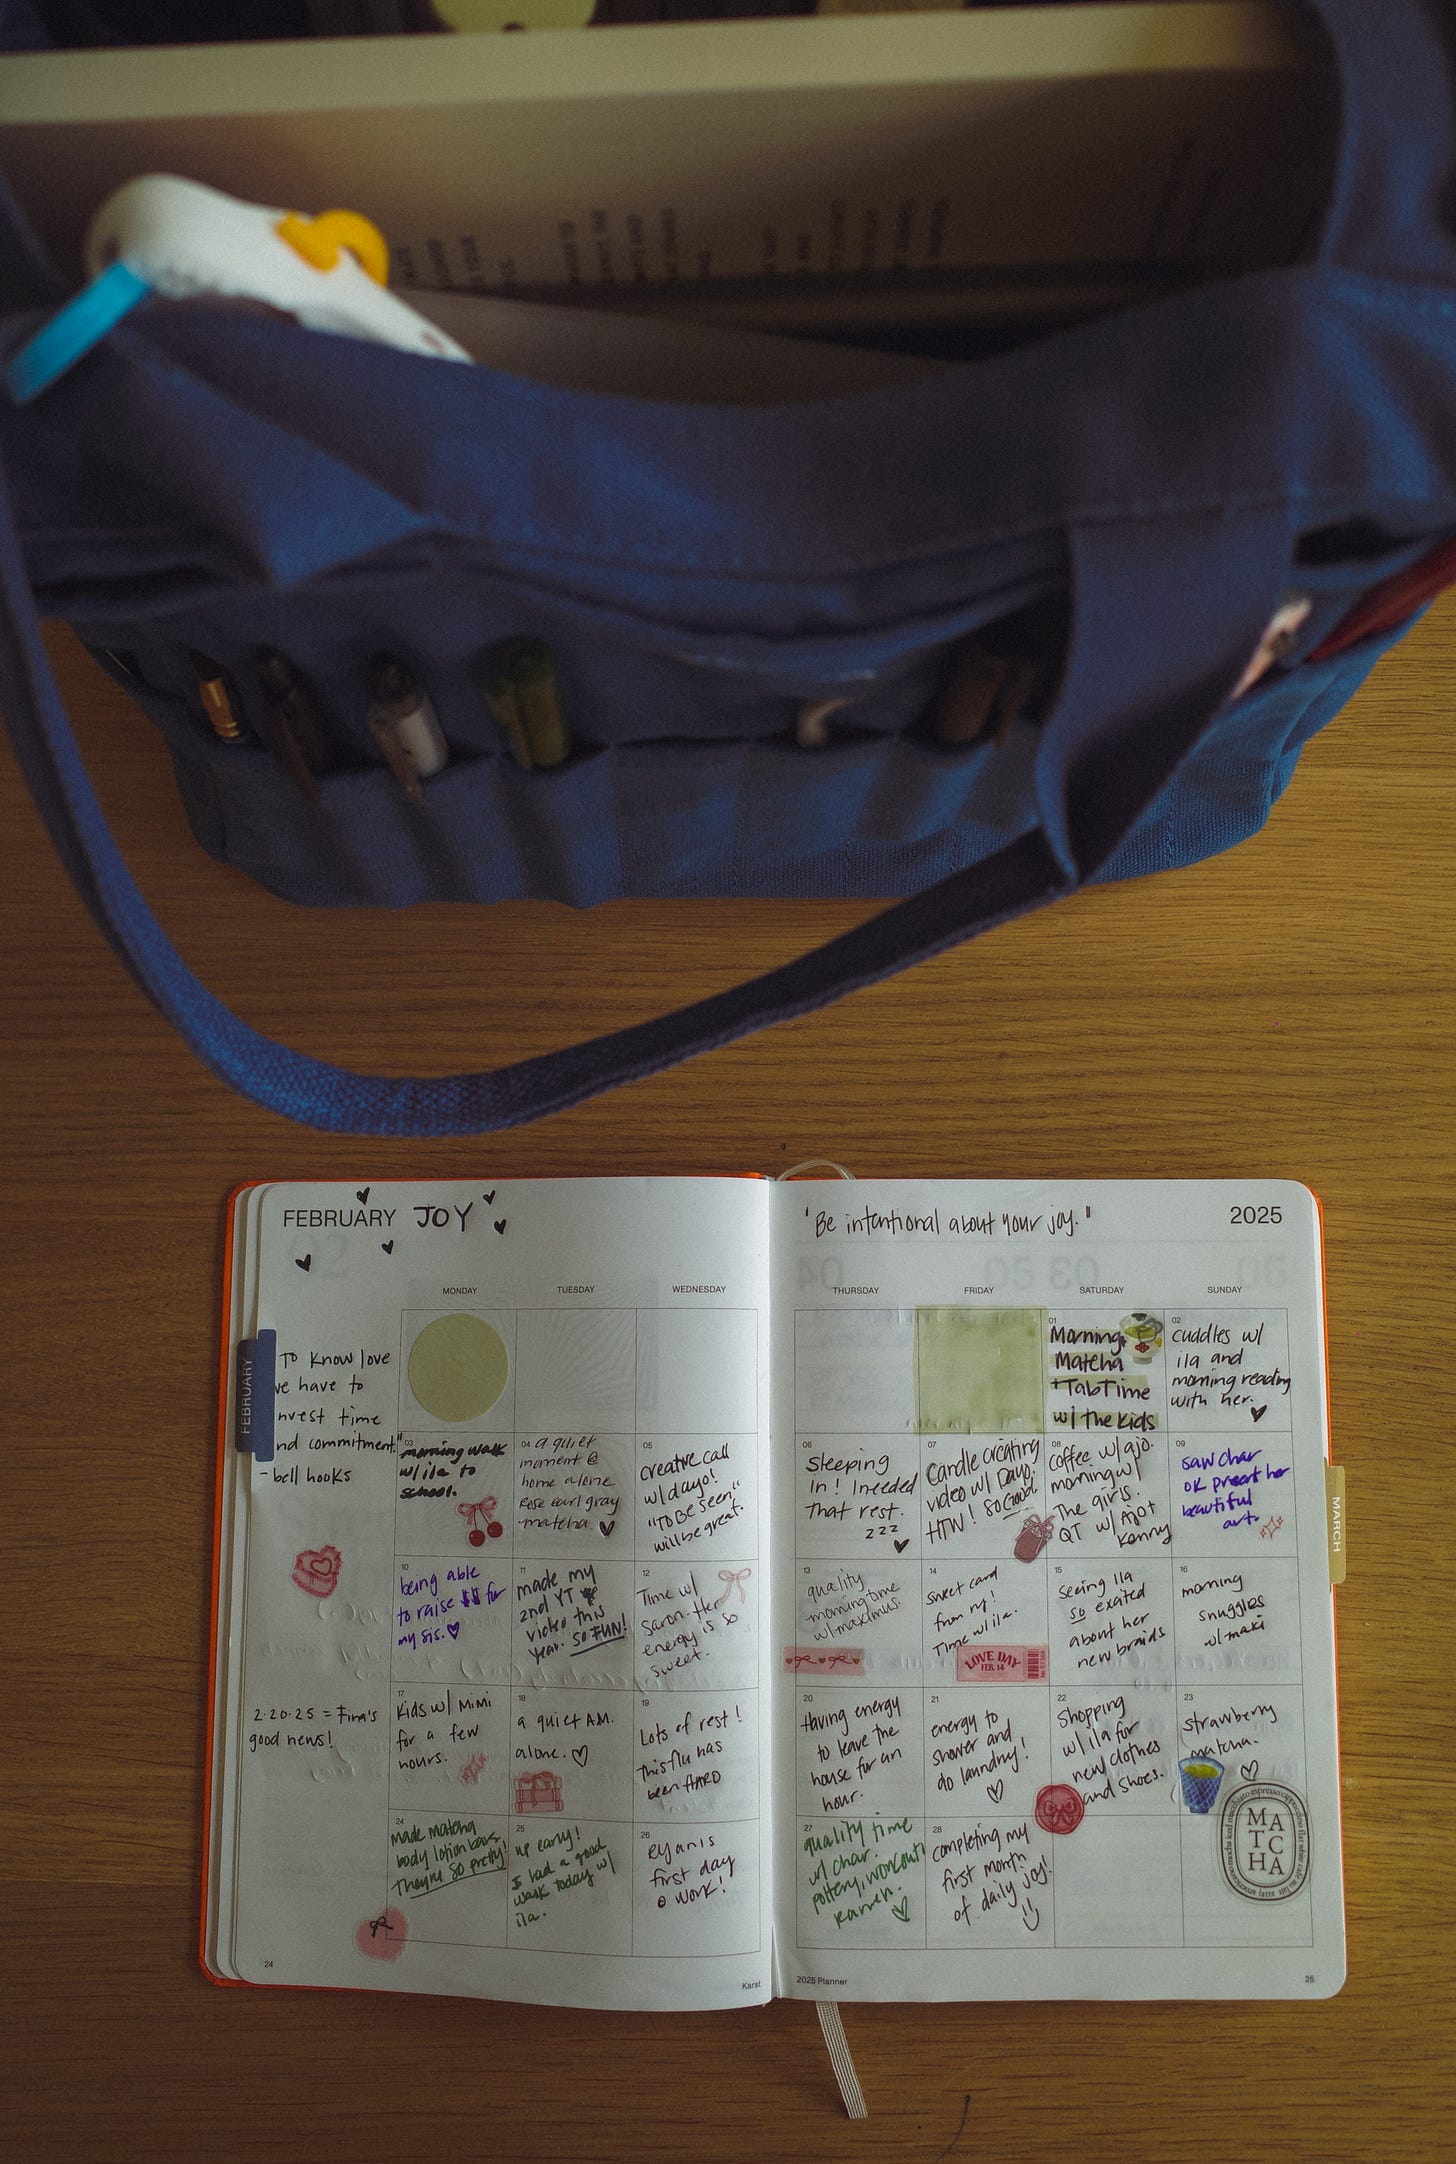 FEBRUARY JOY
"Be intentional about your joy."
2025
MONDAY TUESDAY WEDNESDAY
THURSDAY FRIDAY SATURDAY SUNDAY
FEBRUARY
To know love
ve have to
nvest time
nd commitment."
- bell hooks
2.20.25 = Fina's
good news!
01
Morning
Matcha
+ Tab Time
w/ the kids
02
cuddles w/
ila and
morning reading
with her.
03
morning walk
w/ ila to
school.
04
a quiet
moment @
home alone.
Rose earl gray
matcha
05
creative call
w/ dayo!
"TO BE SEEN"
will be great.
06
Sleeping
in! I needed
that rest.
zzz
07
Candle creating
video w/ Dayo,
HTW! SO GOOD!
08
coffee w/ ajo.
morning w/
The girls.
QT w/ Ajo +
Kenny
09
saw char
OK present her
beautiful
art.
10
being able
to raise $$ for
my sis.
11
made my
2nd YT
video this
year. SO FUN!
12
Time w/
Saron. Her
energy is so
sweet.
13
quality
morning time
w/ maximus.
14
sweet card
from
Time w/ ila.
LOVE DAY
FEB. 14
15
Seeing ila
so exited
about her
new braids
16
morning
snuggles
w/ maki
17
Kids w/ Mimi
for a few
hours.
18
a quiet A.M.
alone.
19
Lots of rest!
this flu has
been HARD
20
Having energy
to leave the
house for an
hour.
21
energy to
shower and
do laundry!
22
Shopping
w/ ila for
new clothes
and shoes.
23
strawberry
matcha.
24
made matcha
body lotion bars.
They're SO pretty!
25
up early!
I had a good
walk today w/
ila.
26
eyanis
first day
@ work!
27
quality time
w/ char.
pottery, workout,
ramen.
28
completing my
first month
of daily joy!
MATCHA
MARCH
24
Karst
2025 Planner
25